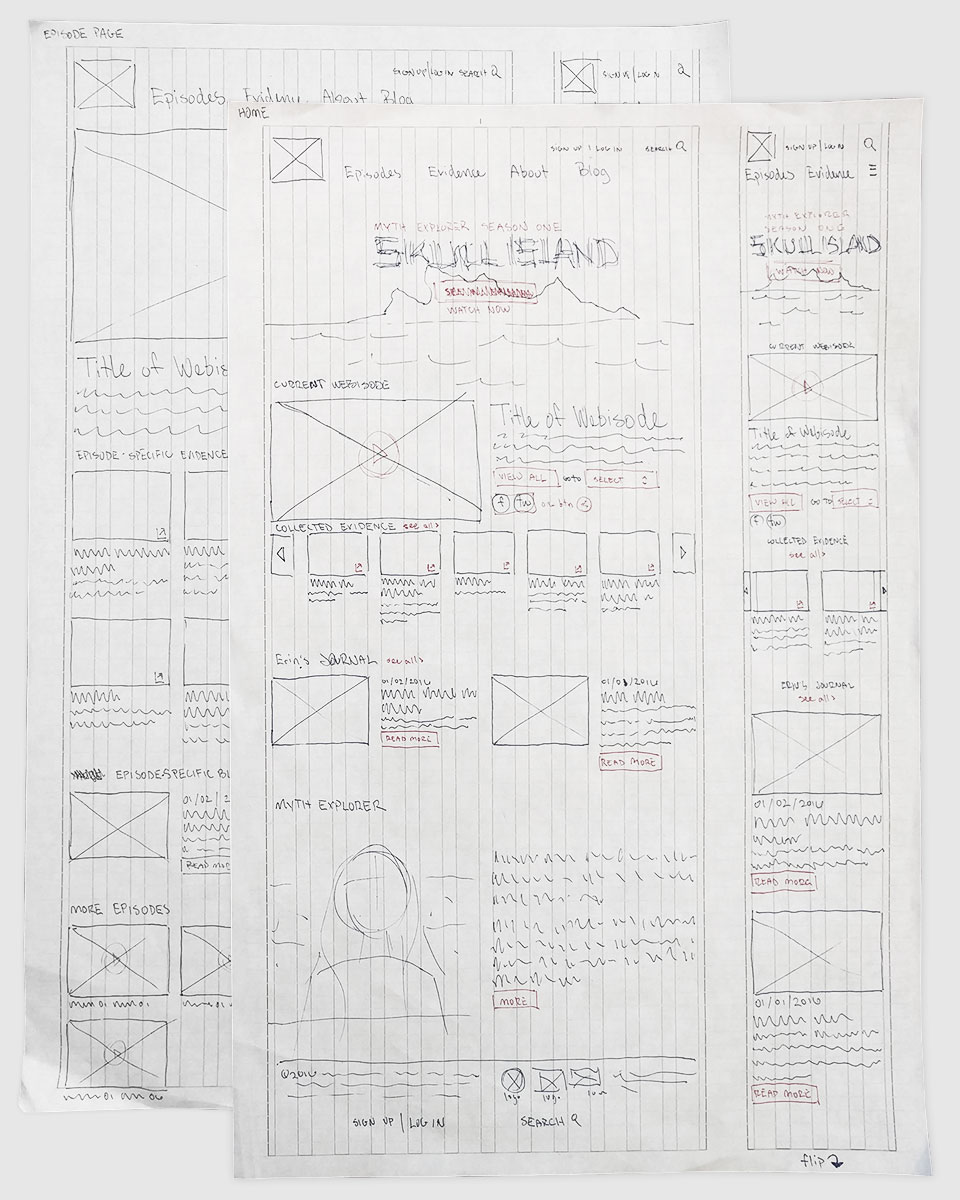 EPISODE PAGE
SIGN UP/LOG IN SEARCH
SIGN UP / LOG IN
Episodes Evidenc About Blog
Title of Webis
EPISODE-SPECIFIC EVIDENCE
EPISODE SPECIFIC BL
01/02/2
READ MOR
MORE EPISODES
HOME
SIGN UP | LOG IN SEARCH
Episodes Evidence About Blog
MYTH EXPLORER SEASON ONE
SKULL ISLAND
WATCH NOW
CURRENT WEBISODE
Title of Webisode
VIEW ALL GOTO SELECT
f tw
COLLECTED EVIDENCE see all>
Erin's JOURNAL see all>
01/02/2016
READ MORE
01/01/2016
READ MORE
MYTH EXPLORER
MORE
©2016
logo
SIGN UP | LOG IN SEARCH
SIGN UP/LOG IN
Episodes Evidence
MYTH EXPLORER
SEASON ONE
SKULL ISLAND
WATCH NOW
CURRENT WEBISODE
Title of Webisode
VIEW ALL GO TO SELECT
f tw
COLLECTED EVIDENCE
see all>
ERIN'S JOURNAL
see all>
01/02/2016
READ MORE
01/01/2016
READ MORE
flip